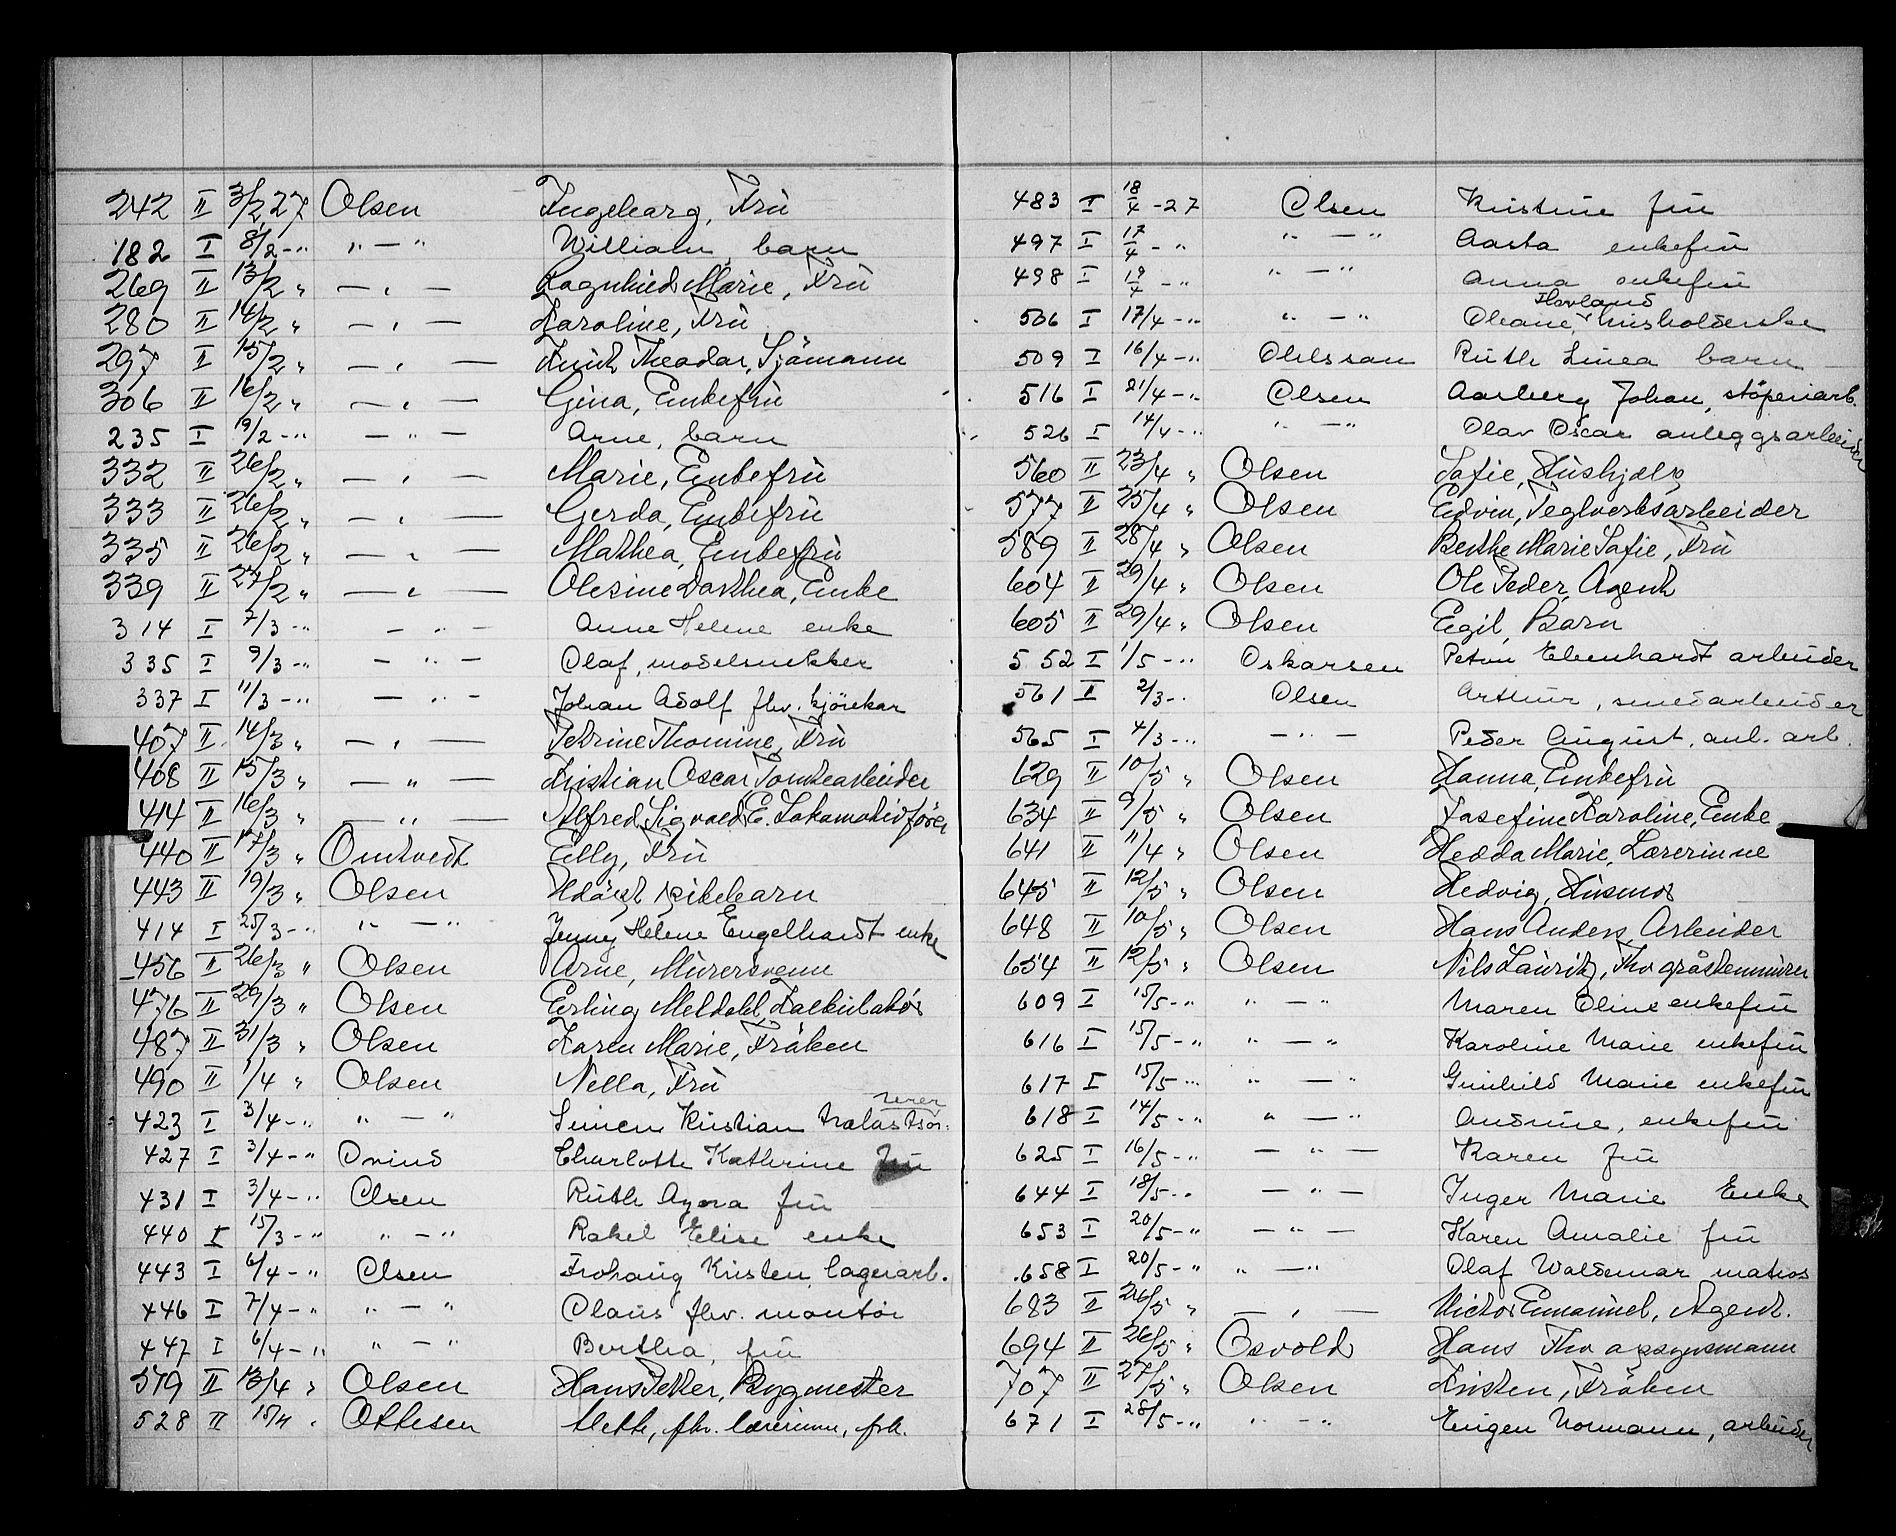 242 II 3/2 27 Olsen Ingeborg, Frü
182 I 8/2 -" " - " William, barn
269 II 13/2 " — " — Ragnhild Marie, Frü
280 II 14/2 " — " — Karoline, Frü
297 II 15/2 " — " — Theodor, Sjömann
306 II 16/2 " — " — Gina, Enkefrü
235 I 19/2 -" — " — Arne, barn
332 II 26/2 " — " — Marie, Enkefrü
333 II 26/2 " — " — Gerda, Enkefrü
335 II 26/2 " — " — Mathea, Enkefrü
339 II 27/2 " — " — Olesine Dorthea, Enke
314 I 7/3 -" — " — Anne Helene enke
335 I 9/3 -" — " — Olaf, modelsnekker
337 I 11/3 -" — " — Johan Adolf fhv. kjörekar
407 II 14/3 " — " — Petrine Thomine, Frü
408 II 15/3 " — " — Kristian Oscar Tomtearbeider
414 II 16/3 " — " — Alfred Sigvald E. Lokomotivförer
440 II 17/3 " Omtvedt Elly, Frü
443 II 19/3 " Olsen Udöpt pikebarn
414 I 25/3 -" " - " Jenny Helene Engelhardt enke
456 II 26/3 " Olsen Arne, Mürersvenn
476 II 29/3 " Olsen Erling Meldahl, Kalkülatör
487 II 31/3 " Olsen Karen Marie, Fröken
490 II 1/4 " Olsen Nella, Frü
423 I 3/4 -" " - " Simen Kristian
427 I 3/4 -" Ovind Charlotte Kathrine frü
431 I 3/4 -" Olsen Rüth Agora frü
440 I 15/3 -" " - " Rakel Elise enke
443 I 6/4 -" Olsen Frohaüg Kristen, lagerarb.
446 I 7/4 -" " - " Olaüs fhv. montör
447 I 6/4 -" " - " Bertha, frü
519 II 13/4 " Olsen Hans Petter, Bygmester
528 II 15/4 " Ottesen Mette, fhv. lærerinne, frk.
483 I 18/4 -27 Olsen Kristine frü
497 I 17/4 -" " - " Aasta enkefrü
498 I 19/4 -" " - " Anna enkefrü
Hovland
506 I 17/4 -" " - " Oleane, hüsholderske
509 I 16/4 -" Ohlsson Rüth Linea barn
516 I 21/4 -" Olsen Aarberg Johan, stöperiarb.
526 I 14/4 -" " - " Olav Oscar anleggsarbeider
560 II 23/4 " Olsen Sofie, Hüshjelp
577 II 25/4 " Olsen Edvin, Teglverksarbeider
589 II 28/4 " Olsen Berthe Marie Sofie, Frü
604 II 29/4 " Olsen Ole Peder, Agent
605 II 29/4 " Olsen Egil, Barn
552 I 1/5 -" Oskarsen Petter Ebenhardt arbeider
561 II 2/3 -" Olsen Arthur, smedarbeider
565 I 4/3 -" — " — Peder Aügüst, anl. arb.
629 II 10/5 " Olsen Hanna, Enkefrü
634 II 9/5 " Olsen Josefine Karoline, Enke
641 II 11/4 " Olsen Hedda Marie, Lærerinne
645 II 12/5 " Olsen Hedvig, Hüsmor
648 II 10/5 " Olsen Hans Anders, Arbeider
654 II 12/5 " Olsen Nils Laüritz, Fhv gråstenmürer
609 I 15/5 -" " - " Maren Oline enkefrü
616 I 15/5 -" " - " Karoline Marie enkefrü
617 I 15/5 -" " - " Günhild Marie enkefrü
618 I 14/5 -" " - " Andrine, enkefrü
625 I 16/5 -" — " — Karen frü
644 I 18/5 -" — " — Inger Marie Enke
653 I 20/5 -" — " — Karen Amalie frü
658 I 20/5 -" " - " Olaf Waldemar matros
683 II 26/5 " — " — Victor Emanüel, Agent.
694 II 26/5 " Osvold Hans Fhv opsynsmann
707 II 27/5 " Olsen Kristen, Fröken
671 I 28/5 -" " - " Eügen Normann, arbeider